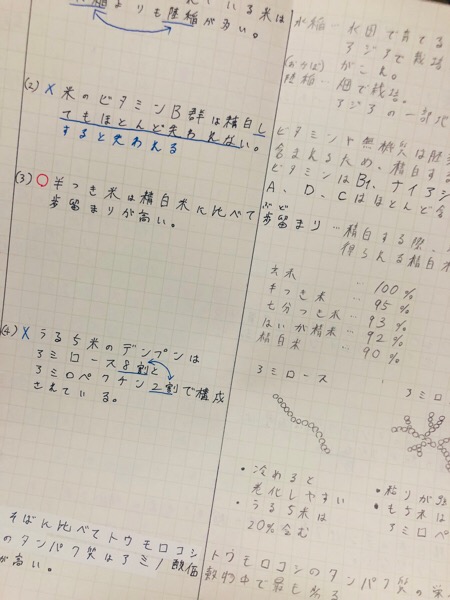 いる米は
水稲よりも陸稲が多い。
(2) X 米のビタミンB群は精白し
てもほとんど失われない。
すると失われる
(3) ○ 半つき米は精白米に比べて
歩留まりが高い。
(4) X うるち米のデンプンは
アミロース8割と
アミロペクチン2割で構成
されている。
そばに比べてトウモロコシ
のタンパク質はアミノ酸価
が高い。
水稲…水田で育てる
アジアで栽培
(おかぼ) がこん。
陸稲…畑で栽培。
アジアの一部地
ビタミンや無機質は胚芽
含まれるため、精白する
ビタミンはB1、ナイアシ
A、D、Cはほとんど含
ぶど
歩留まり…精白する際、
得られる精白米
玄米 … 100%
半つき米 … 95%
七分つき米 … 93%
はいが精米 … 92%
精白米 … 90%
アミロース
アミロ
・冷めると
老化しやすい
・うるち米は
20%含む
・粘りが強
・もち米は
アミロペ
トウモロコシのタンパク質の栄
穀物中で最も劣る